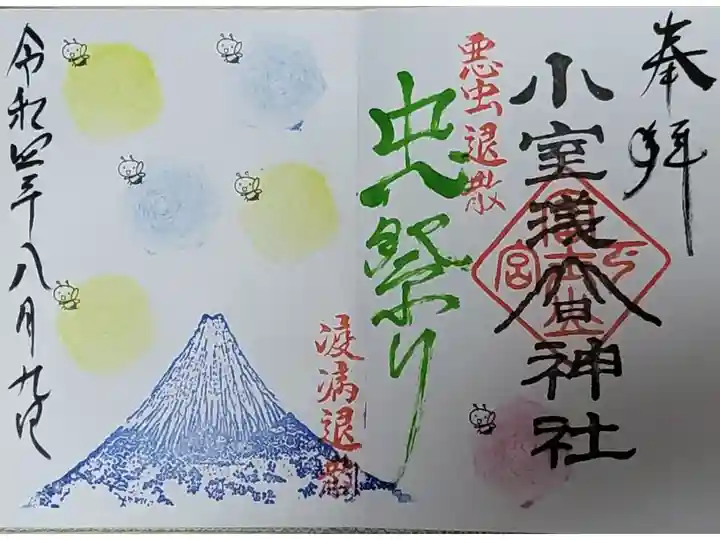 奉拝
小室浅間神社
悪虫退散
虫祭り
疫病退散
令和四年八月九日